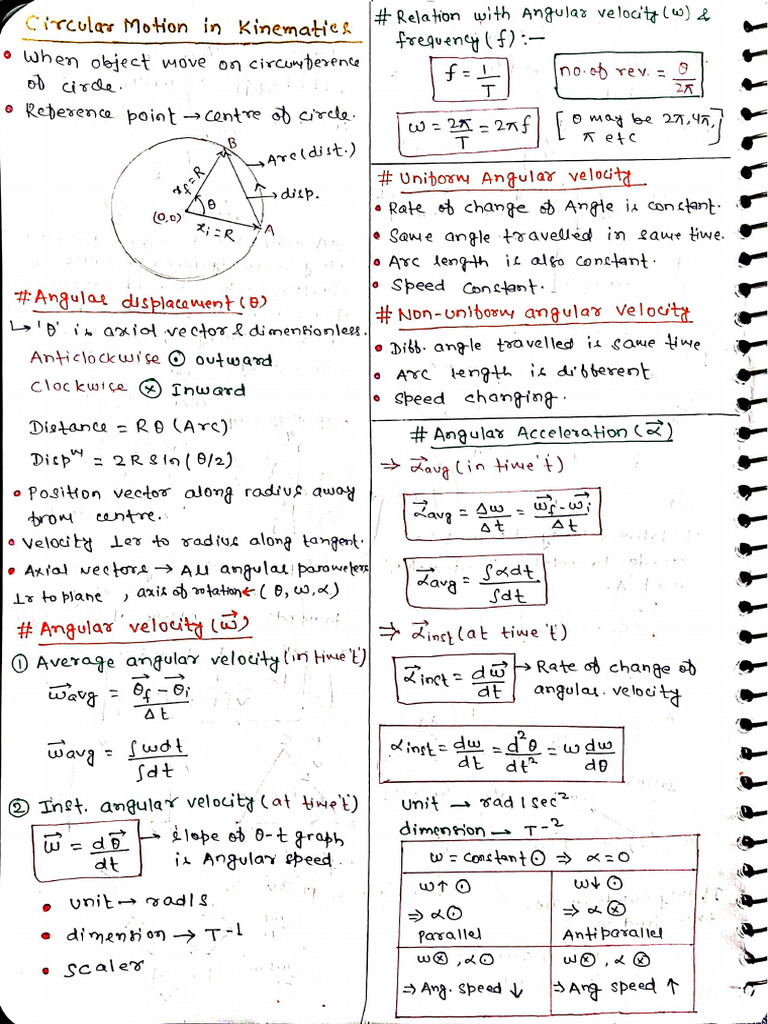 Circular Motion in Kinematics
• When object move on circumference
of circle.
• Reference point → centre of circle.
B
Arc (dist.)
r_f = R
θ
disp.
(0,0)
x_i = R
A
# Angular displacement (θ)
↳ 'θ' is axial vector & dimensionless.
Anticlockwise ⊙ outward
Clockwise ⊗ Inward
Distance = Rθ (Arc)
Dispⁿ = 2R sin (θ/2)
• Position vector along radius away
from centre.
• Velocity ⊥er to radius along tangent.
• Axial vectors → All angular parameters
⊥r to plane , axis of rotation ← (θ, ω, α)
# Angular velocity (ω⃗)
① Average angular velocity (in time 't')
ω⃗avg = (θ⃗f - θ⃗i)/Δt
ω⃗avg = ∫ωdt/∫dt
② Inst. angular velocity (at time 't')
ω⃗ = dθ⃗/dt → slope of θ-t graph
is Angular speed
• unit → rad/s
• dimension → T⁻¹
• scaler
# Relation with Angular velocity (ω) &
frequency (f) :—
f = 1/T
no. of rev. = θ/2π
ω = 2π/T = 2πf
[θ may be 2π, 4π,
π etc
# Uniform Angular velocity
• Rate of change of Angle is constant.
• Same angle travelled in same time.
• Arc length is also constant.
• Speed constant.
# Non-uniform angular velocity
• Diff. angle travelled is same time
• Arc length is different
• Speed changing.
# Angular Acceleration (α⃗)
⇒ α⃗avg (in time 't')
α⃗avg = Δω/Δt = (ω⃗f - ω⃗i)/Δt
α⃗avg = ∫αdt/∫dt
⇒ α⃗inst (at time 't')
α⃗inst = dω⃗/dt → Rate of change of
angular velocity
αinst = dω/dt = d²θ/dt² = ω dω/dθ
unit → rad/sec²
dimension → T⁻²
ω = constant ⊙ ⇒ α = 0
ω↑ ⊙
⇒ α ⊙
Parallel
ω↓ ⊙
⇒ α ⊗
Antiparallel
ω⊗ , α⊙
⇒ Ang. speed ↓
ω⊗ , α ⊗
⇒ Ang speed ↑